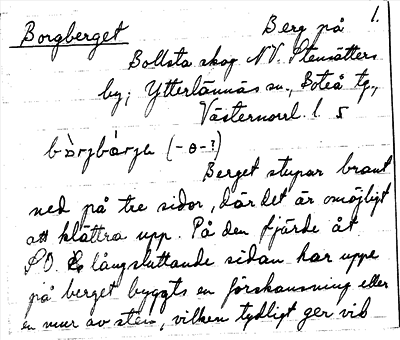 Borgberget
Berg på 1.
Bollsta skog N.V. Stensätters
by; Ytterlännäs sn., Boteå tg.,
Västernorrl. l. 5
bòrjbàrjə (-ɵ-?)
Berget stupar brant
ned på tre sidor, där det är omöjligt
att klättra upp. På den fjärde åt
S.O. långsluttande sidan har uppe
på berget byggts en förskansning eller
en mur av sten, vilken tydligt ger vid